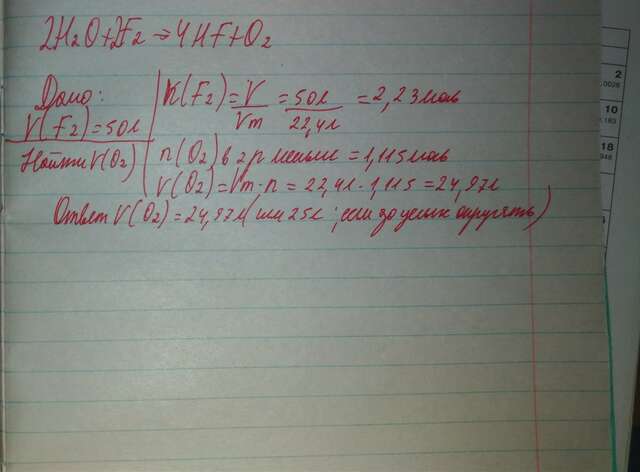 2H2O+2F2 → 4HF+O2
Дано:
V(F2)=50л
Найти V(O2)
n(F2)=V/Vm=50л/22,4л=2,23моль
n(O2) в 2 р меньше=1,115моль
V(O2)=Vm·n=22,4л·1,115=24,97л
Ответ V(O2)=24,97л(или 25л; если до целых округлять)
2
.0026
10
.183
18
.948